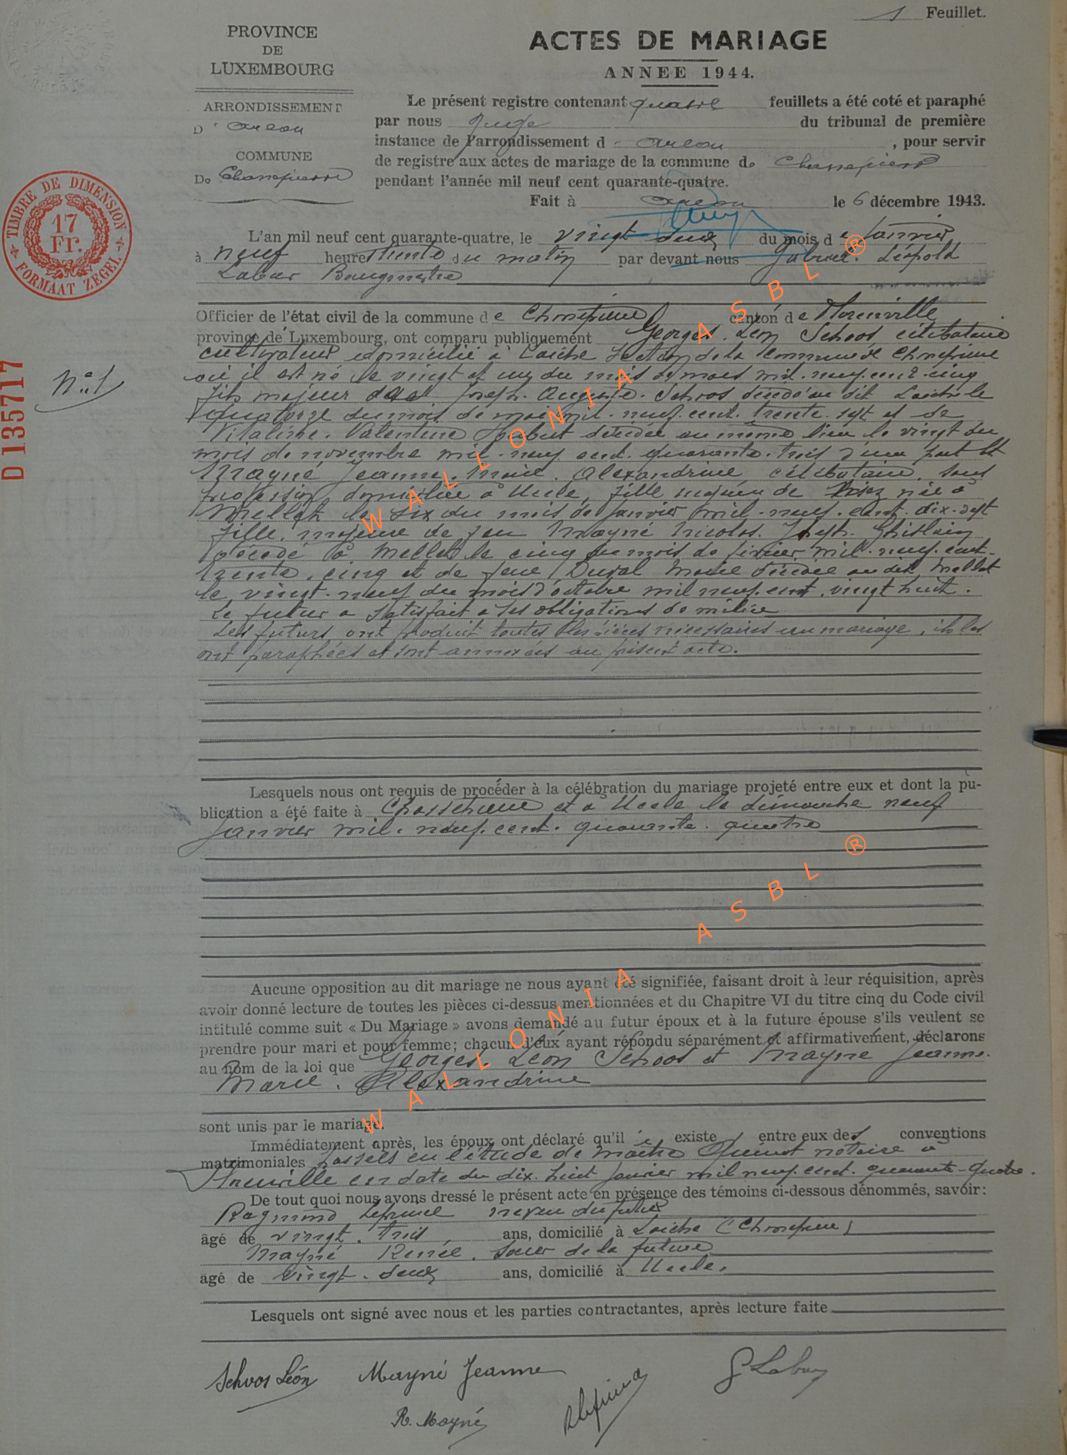 1 Feuillet.
PROVINCE
DE
LUXEMBOURG
ARRONDISSEMENT
D' Arlon
COMMUNE
De Chassepierre
ACTES DE MARIAGE
ANNEE 1944.
Le présent registre contenant quatre feuillets a été coté et paraphé
par nous Juge du tribunal de première
instance de l'arrondissement d Arlon, pour servir
de registre aux actes de mariage de la commune de Chassepierre
pendant l'année mil neuf cent quarante-quatre.
Fait à Arlon le 6 décembre 1943.
TIMBRE DE DIMENSION
17
Fr.
FORMAAT ZEGEL
D 135717
N° 1
L'an mil neuf cent quarante-quatre, le vingt deux du mois de Janvier
à neuf heures trente du matin par devant nous Léopold
Labar Bourgmestre
Officier de l'état civil de la commune de Chassepierre canton de Florenville
province de Luxembourg, ont comparu publiquement Georges. Léon Schoos, célibataire
cultivateur domicilié à Laiche Section de la Commune de Chassepierre
où il est né le vingt et un du mois de mars mil. neuf. cent cinq
fils majeur de Joseph. Auguste. Schoos décédé au dit Laiche le
quatorze du mois de mai mil. neuf. cent. trente. sept et de
Vitaline. Valentine décédée au même lieu le vingt du
mois de novembre mil. neuf cent. quarante. trois d'une part et
Mayné Jeanne. Marie. Alexandrine célibataire, sans
profession, domiciliée à Uccle, fille majeure de née à
Mellet le six du mois de Janvier mil. neuf. cent. dix-sept
fille majeure de feu Mayné Nicolas. Joseph. Ghislain
décédé à Mellet le cinq du mois de février mil. neuf. cent.
trente. cinq et de feue, Duval Marie décédée au dit Mellet
le vingt. neuf du mois d'octobre mil neuf cent. vingt huit.
Le futur a satisfait à ses obligations de milice
Les futurs ont produit toutes les pièces nécessaires au mariage, ils les
ont paraphées et sont annexées au présent acte.
Lesquels nous ont requis de procéder à la célébration du mariage projeté entre eux et dont la pu-
blication a été faite à Chassepierre et à Uccle le dimanche neuf
Janvier mil. neuf. cent. quarante. quatre
Aucune opposition au dit mariage ne nous ayant été signifiée, faisant droit à leur réquisition, après
avoir donné lecture de toutes les pièces ci-dessus mentionnées et du Chapitre VI du titre cinq du Code civil
intitulé comme suit « Du Mariage » avons demandé au futur époux et à la future épouse s'ils veulent se
prendre pour mari et pour femme; chacun d'eux ayant répondu séparément et affirmativement, déclarons
au nom de la loi que Georges. Léon Schoos et Mayné Jeanne.
Marie. Alexandrine
sont unis par le mariage.
Immédiatement après, les époux ont déclaré qu'il existe entre eux des conventions
matrimoniales passées en l'étude de maître notaire à
Florenville en date du dix. huit Janvier mil neuf cent. quarante-quatre.
De tout quoi nous avons dressé le présent acte en présence des témoins ci-dessous dénommés, savoir:
Raymond neveu du futur
âgé de vingt. trois ans, domicilié à Laiche (Chassepierre)
Mayné Renée. soeur de la future
âgé de vingt. deux ans, domicilié à Uccle.
Lesquels ont signé avec nous et les parties contractantes, après lecture faite
Schoos Léon Mayné Jeanne
R. Mayné
WALLONIA ASBL ®
WALLONIA ASBL ®